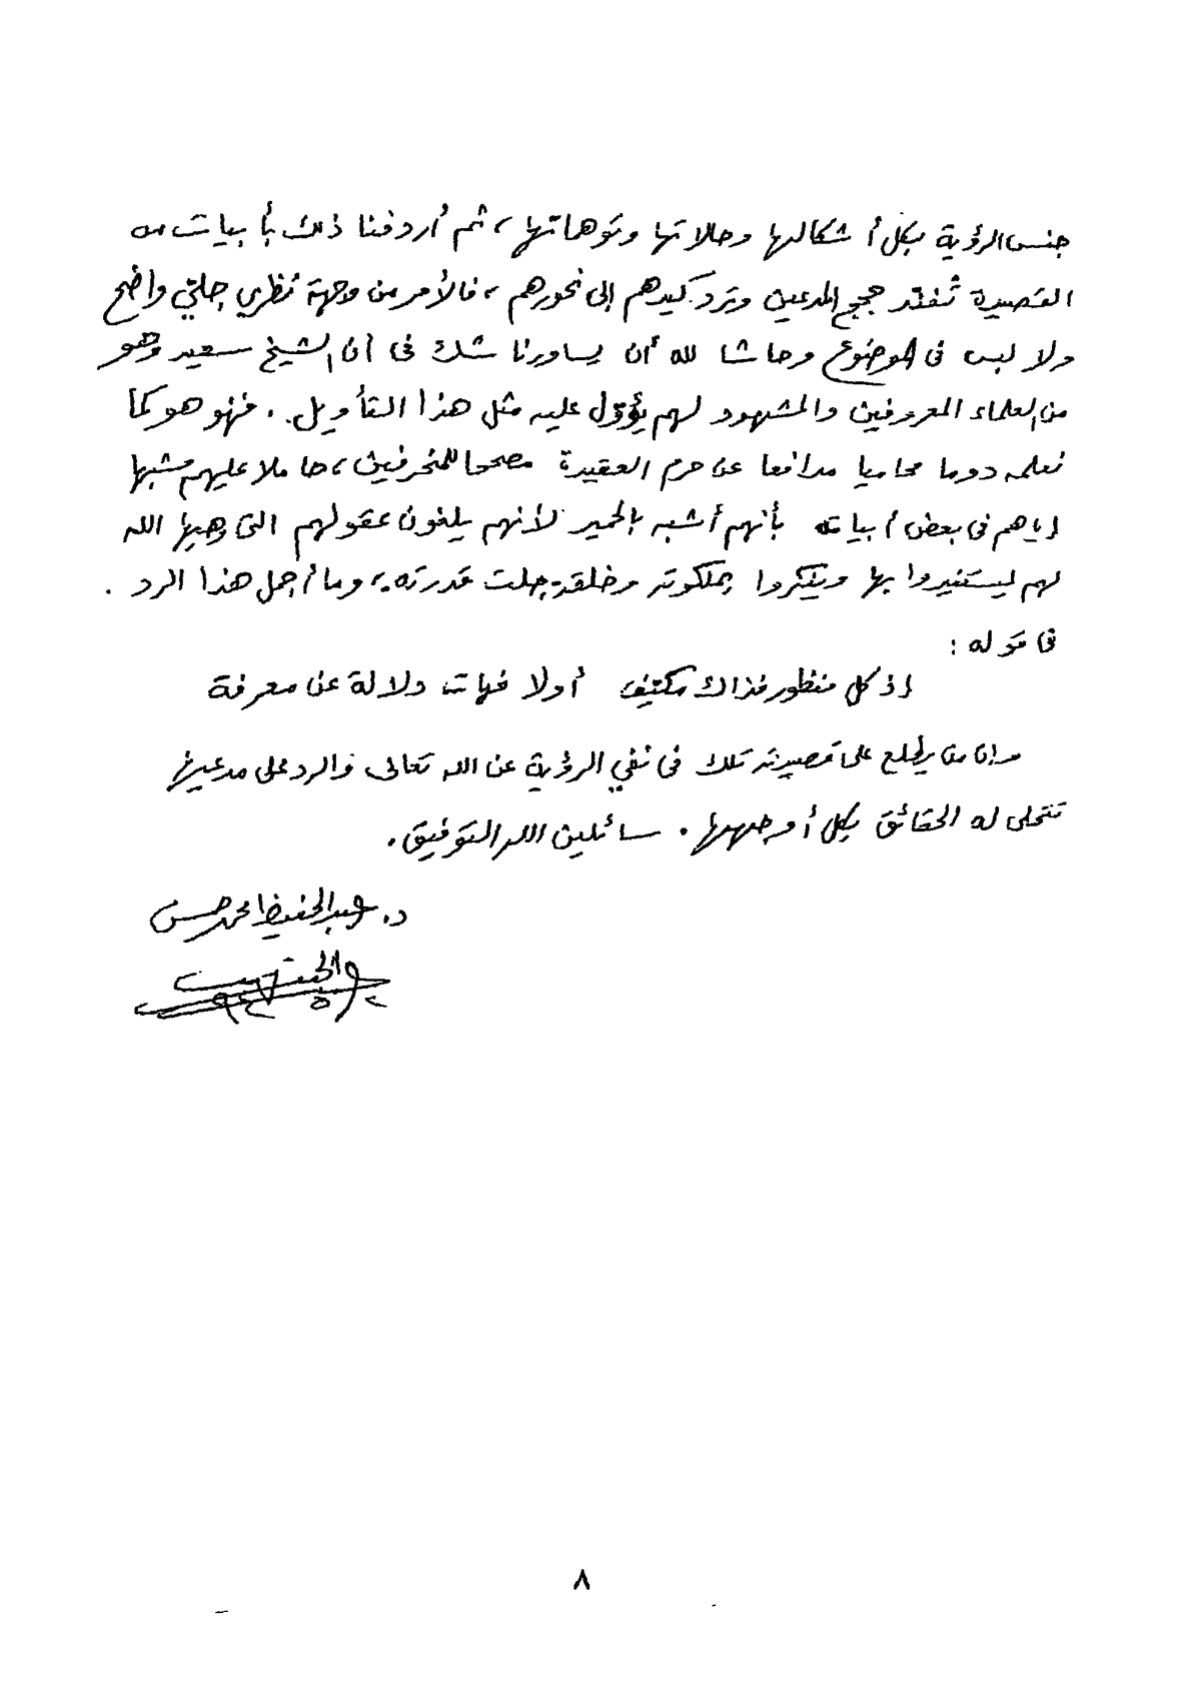 جنس الرؤية بكل أشكالها وحالاتها وتوهماتها، ثم أردفنا ذلك بأبيات من
القصيدة تفند حجج المدعين وترد كيدهم إلى نحورهم، فالأمر من وجهة نظري جليّ واضح
ولا لبس فى الموضوع وحاشا لله أن يساورنا شك فى أن الشيخ سعيد وهو
من العلماء المعروفين والمشهود لهم يؤوّل عليه مثل هذا التأويل. فهو هو كما
نعلمه دوما محاميا مدافعا عن حرم العقيدة مصححا للمنحرفين، حاملا عليهم مشبها
إياهم فى بعض أبياته بأنهم أشبه بالحمير لأنهم يلغون عقولهم التى وهبها الله
لهم ليستنيروا بها ويتفكروا بملكوته وخلقه جلت قدرته، وما أجمل هذا الرد.
فى قوله:
إذ كل منظور فذاك مكيّف أولا فهات دلالة عن معرفة
وإن من يطلع على قصيدته تلك فى نفي الرؤية عن الله تعالى والرد على مدعيها
تتجلى له الحقائق بكل أوجهها. سائلين الله التوفيق.
د. عبد الحفيظ محمد حسن
٨